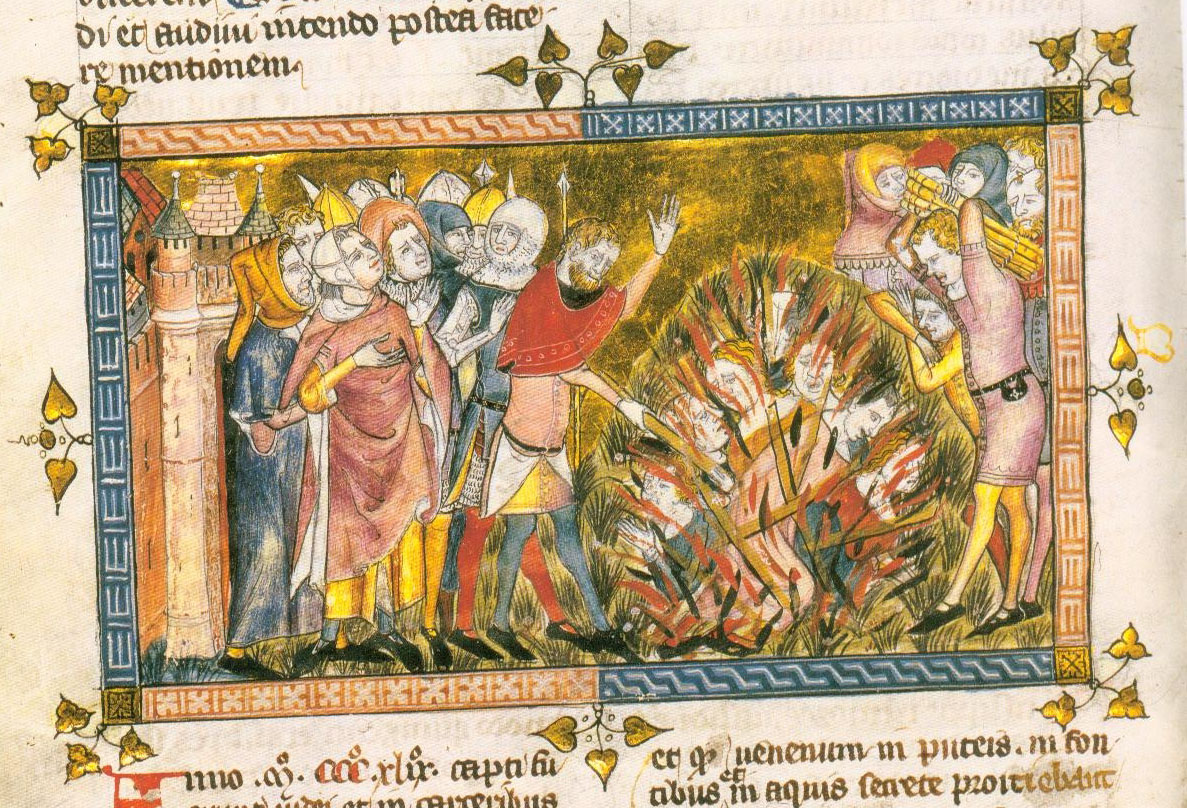 di et audiui intendo postea face
re mentionem.
nno .mͦ. cccͦ.xlixͦ. capti fu
et in carceribus
et qͥ uenenum in puteis. in fon
tibus et in aquis secrete proiciebant